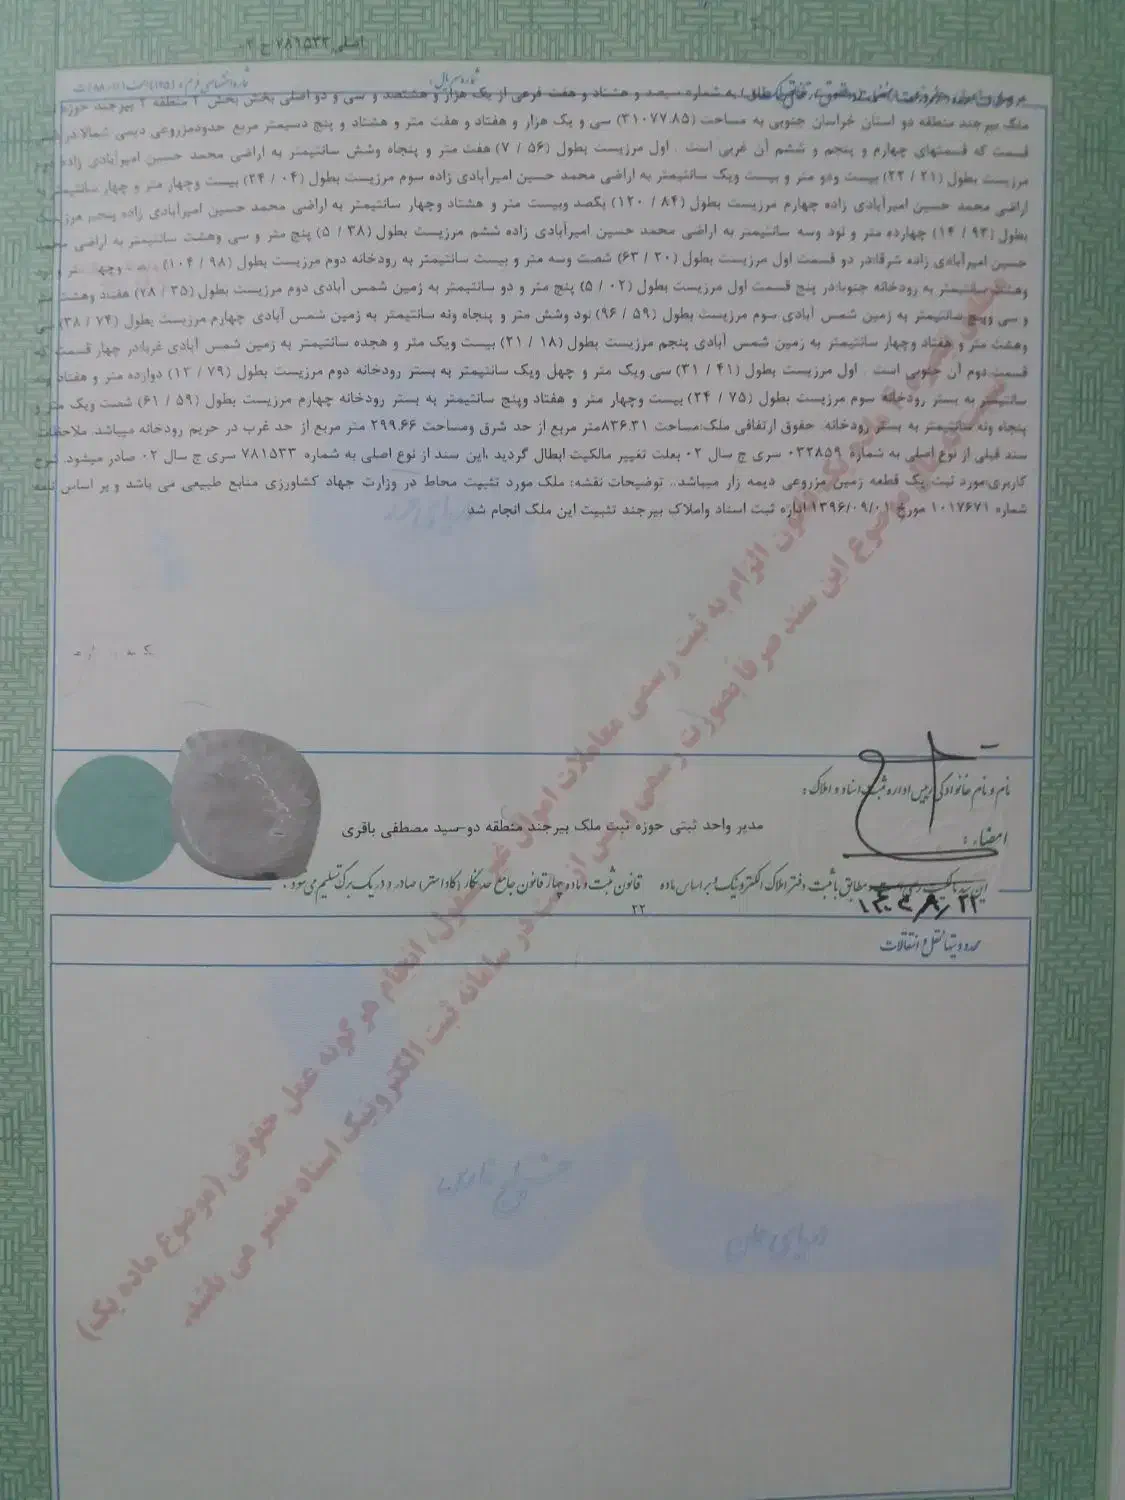 اصلی ۷۸۱۵۳۳ ج ۰۲
شماره سریال :
به شماره سیصد و هشتاد و هفت فرعی از یک هزار و هشتصد و سی و دو اصلی بخش بخش ۲ منطقه ۲ بیرجند حوزه
ملک بیرجند منطقه دو استان خراسان جنوبی به مساحت (۳۱۰۷۷.۸۵) سی و یک هزار و هفتاد و هفت متر و هشتاد و پنج دسیمتر مربع حدودمزروعی دیمی شمالا:در شش
قسمت که قسمتهای چهارم و پنجم و ششم آن غربی است . اول مرزیست بطول (۵۶ / ۷) هفت متر و پنجاه وشش سانتیمتر به اراضی محمد حسین امیرآبادی زاده دوم
مرزیست بطول (۲۱ / ۲۲) بیست ودو متر و بیست ویک سانتیمتر به اراضی محمد حسین امیرآبادی زاده سوم مرزیست بطول (۰۴ / ۲۴) بیست وچهار متر و چهار سانتیمتر به
اراضی محمد حسین امیرآبادی زاده چهارم مرزیست بطول (۸۴ / ۱۲۰) یکصد وبیست متر و هشتاد وچهار سانتیمتر به اراضی محمد حسین امیرآبادی زاده پنجم مرزیست
بطول (۹۳ / ۱۴) چهارده متر و نود وسه سانتیمتر به اراضی محمد حسین امیرآبادی زاده ششم مرزیست بطول (۳۸ / ۵) پنج متر و سی وهشت سانتیمتر به اراضی محمد
حسین امیرآبادی زاده شرقا:در دو قسمت اول مرزیست بطول (۲۰ / ۶۳) شصت وسه متر و بیست سانتیمتر به رودخانه دوم مرزیست بطول (۹۸ / ۱۰۴) وچهار متر و نود
وهشت سانتیمتر به رودخانه جنوبا:در پنج قسمت اول مرزیست بطول (۰۲ / ۵) پنج متر و دو سانتیمتر به زمین شمس آبادی دوم مرزیست بطول (۳۵ / ۷۸) هفتاد وهشت متر
و سی وپنج سانتیمتر به زمین شمس آبادی سوم مرزیست بطول (۵۹ / ۹۶) نود وشش متر و پنجاه ونه سانتیمتر به زمین شمس آبادی چهارم مرزیست بطول (۷۴ / ۳۸) سی
وهشت متر و هفتاد وچهار سانتیمتر به زمین شمس آبادی پنجم مرزیست بطول (۱۸ / ۲۱) بیست ویک متر و هجده سانتیمتر به زمین شمس آبادی غربا:در چهار قسمت که
قسمت دوم آن جنوبی است . اول مرزیست بطول (۴۱ / ۳۱) سی ویک متر و چهل ویک سانتیمتر به بستر رودخانه دوم مرزیست بطول (۷۹ / ۱۲) دوازده متر و هفتاد ونه
سانتیمتر به بستر رودخانه سوم مرزیست بطول (۷۵ / ۲۴) بیست وچهار متر و هفتاد وپنج سانتیمتر به بستر رودخانه چهارم مرزیست بطول (۵۹ / ۶۱) شصت ویک متر و
پنجاه ونه سانتیمتر به بستر رودخانه. حقوق ارتفاقی ملک:مساحت ۸۳۶.۳۱متر مربع از حد شرق ومساحت ۲۹۹.۶۶ متر مربع از حد غرب در حریم رودخانه میباشد. ملاحظات
سند قبلی از نوع اصلی به شماره ۰۳۲۸۵۹ سری ج سال ۰۲ بعلت تغییر مالکیت ابطال گردید ،این سند از نوع اصلی به شماره ۷۸۱۵۳۳ سری ج سال ۰۲ صادر میشود. شرح
کاربری:مورد ثبت یک قطعه زمین مزروعی دیمه زار میباشد.. توضیحات نقشه: ملک مورد تثبیت محاط در وزارت جهاد کشاورزی منابع طبیعی می باشد و بر اساس نامه
شماره ۱۰۱۷۶۷۱ مورخ ۱۳۹۶/۰۹/۰۱ اداره ثبت اسناد واملاک بیرجند تثبیت این ملک انجام شد.
نام و نام خانوادگی رییس اداره ثبت اسناد و املاک :
مدیر واحد ثبتی حوزه ثبت ملک بیرجند منطقه دو-سید مصطفی باقری
امضاء :
این سند مالکیت مطابق با ثبت دفتر املاک الکترونیک و بر اساس ماده ۲۲ قانون ثبت و ماده چهار قانون جامع حدنگار (کاداستر) صادر و در یک برگ تسلیم می‌شود .
محدودیتها نقل و انتقالات
قانون الزام به ثبت رسمی معاملات اموال غیرمنقول، انجام هرگونه عمل حقوقی (موضوع ماده یک)
موضوع این سند صرفاً بصورت رسمی و پس از ثبت در سامانه ثبت الکترونیک اسناد معتبر می باشد.
خلیج فارس
دریای عمان